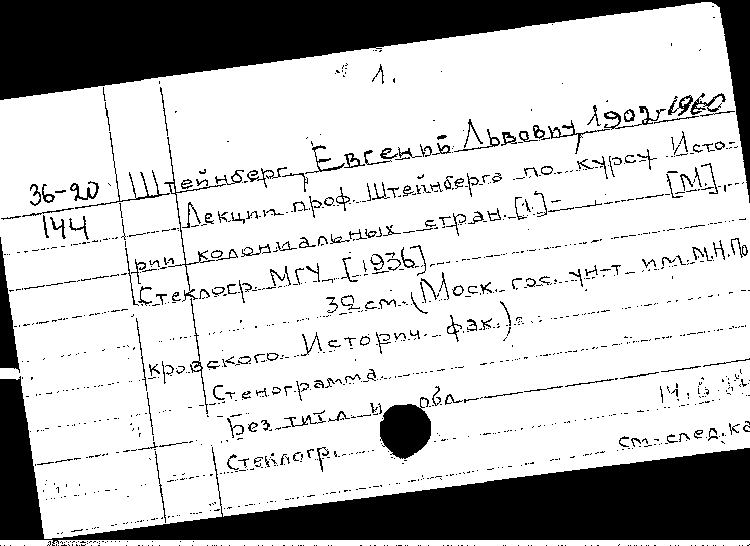 1.
36-20
144
Штейнберг, Евгений Львович, 1902-1960
Лекции проф. Штейнберга по курсу Исто-
рии колониальных стран. [1.]- [М.],
Стеклогр. МГУ [1936]
32 см. (Моск. гос. ун-т им. М.Н. По
кровского. Историч. фак.).
Стенограмма.
Без тит. л. и обл.
Стеклогр. 14.6
см. след. ка